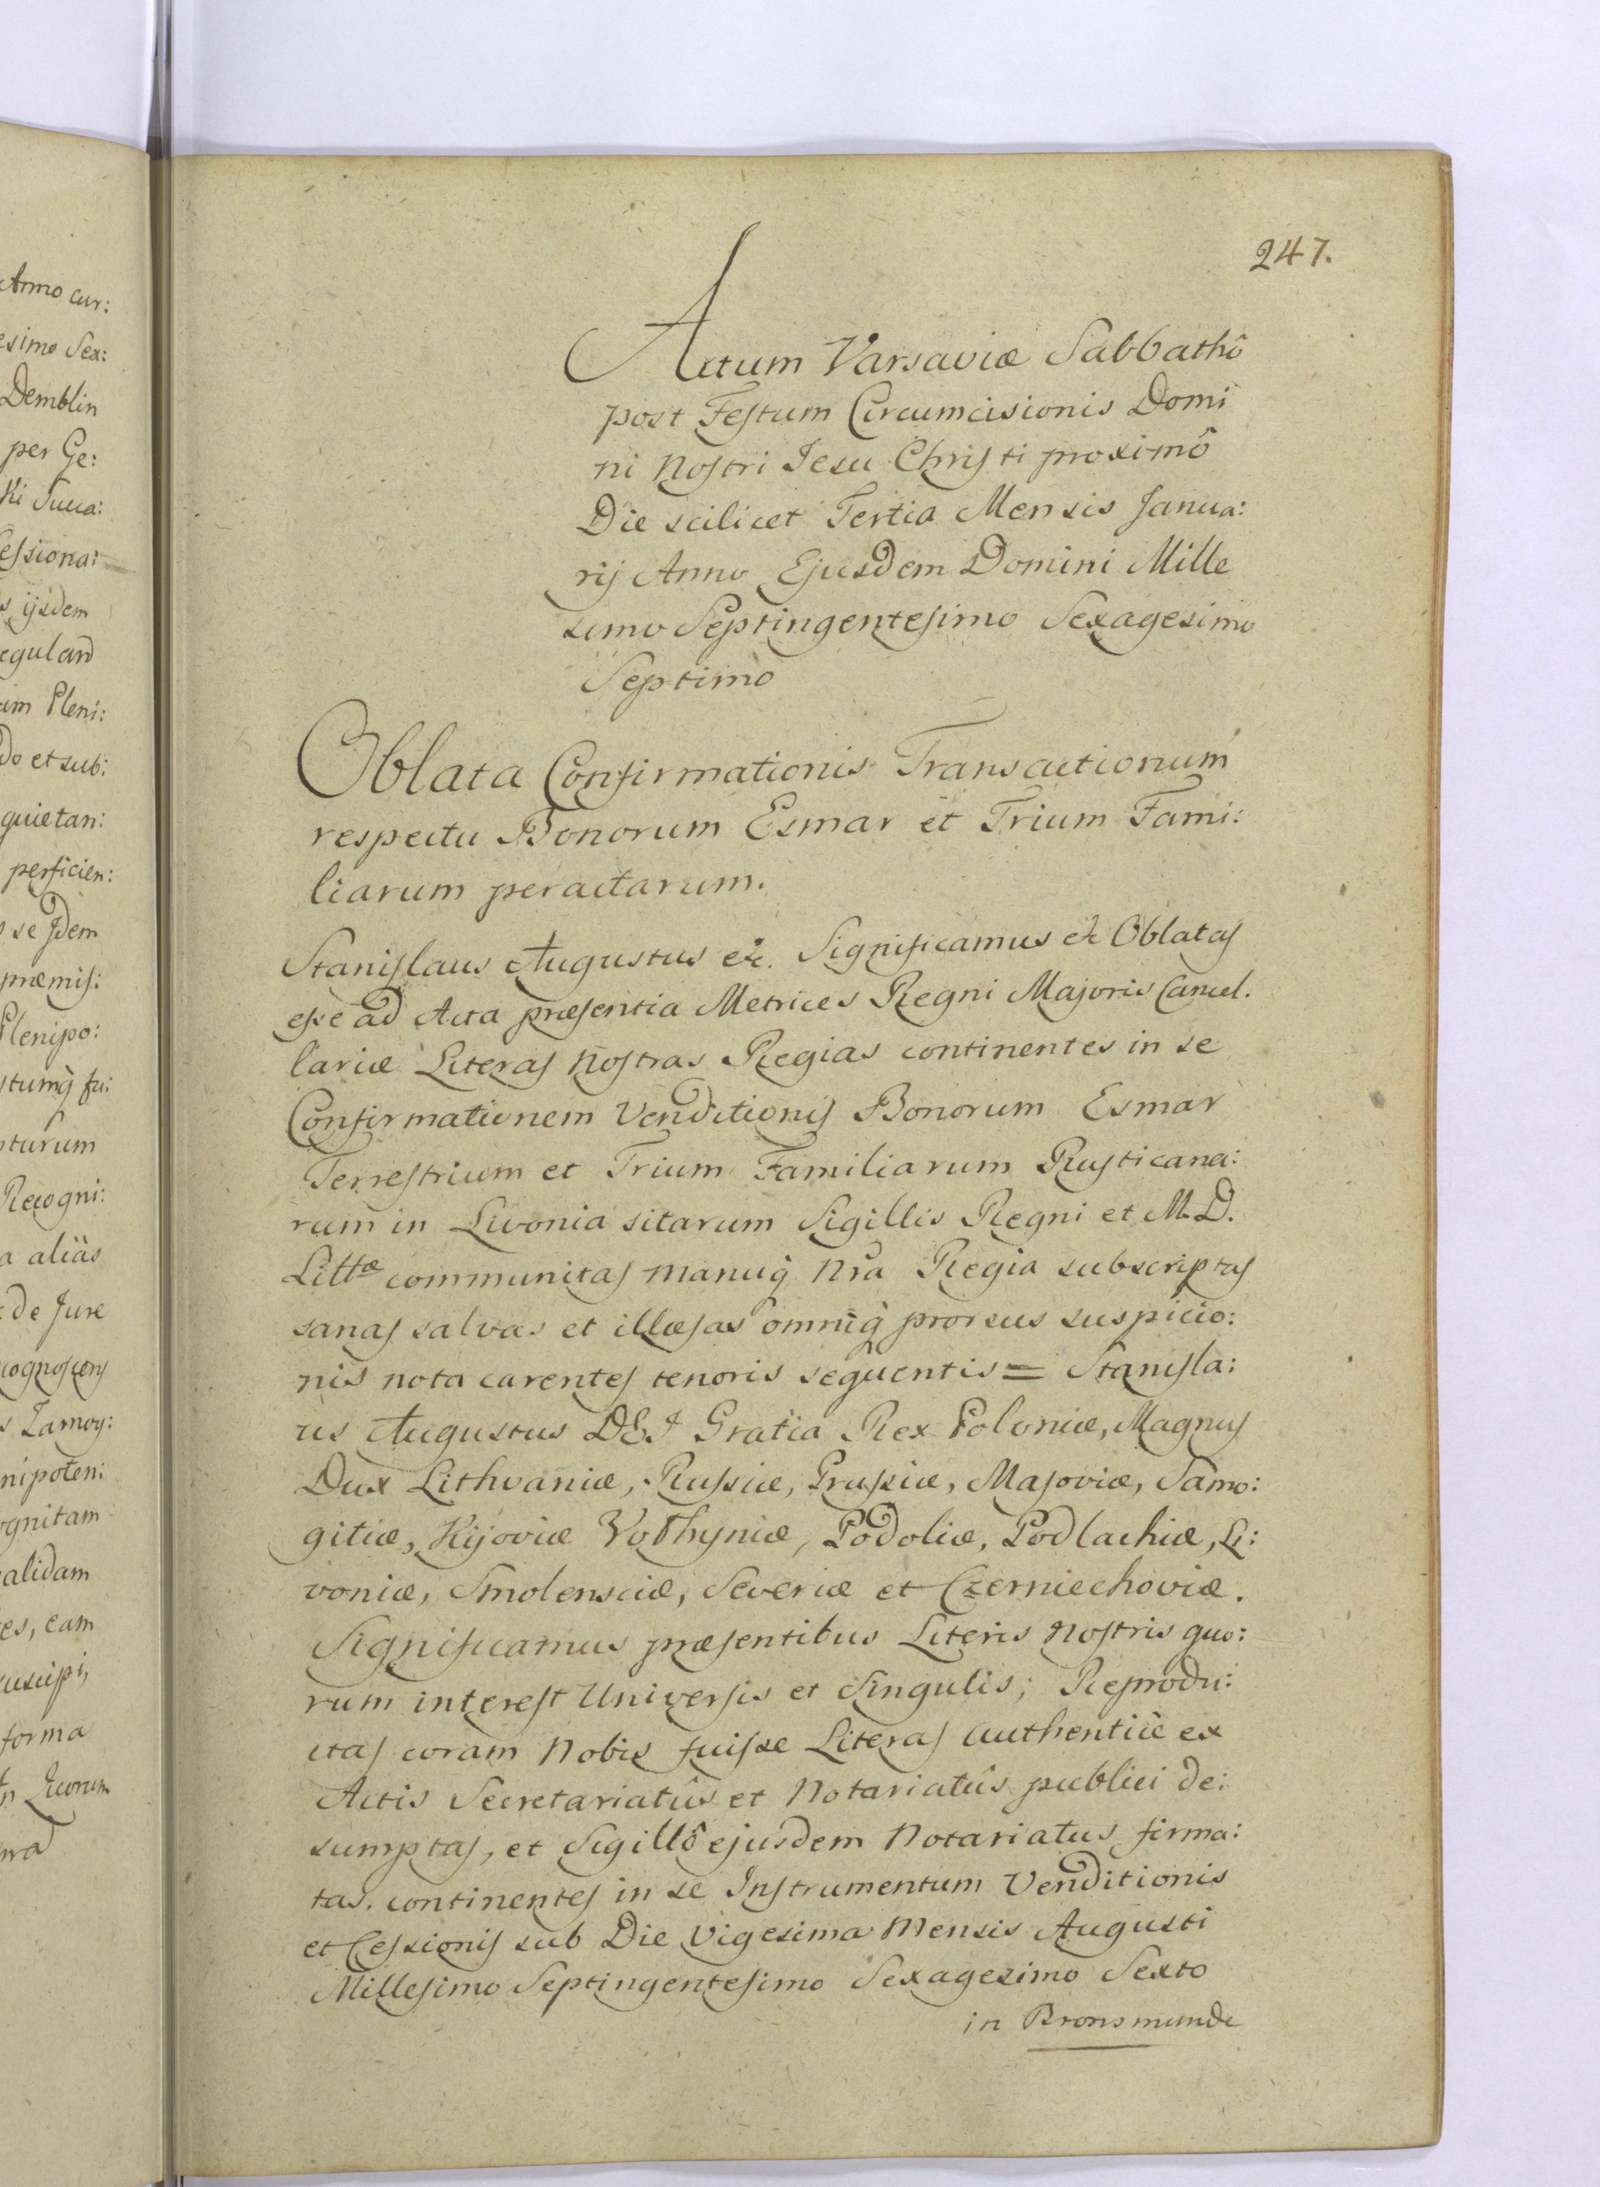 Anno cur:
esimo Sex:
Demblin
per Ge:
ki Succa:
cessiona:
s ijsdem
egulard
um Pleni:
do et sub:
quietan:
perficien:
se Jdem
præmis:
Plenipo:
stumq̃ fu:
pturum
Recogni:
a aliàs
de Jure
cognoscens
s Zamoy:
nipoten:
ognitam
alidam
es, eam
suscipi,
forma
Quorum
247.
Actum Varsaviæ Sabbathô
post Festum Circumcisionis Domi
ni Nostri Jesu Christi proximô
Die scilicet Tertia Mensis Janua:
rij Anno Ejusdem Domini Mille
simo Septingentesimo Sexagesimo
Septimo
Oblata Confirmationis Transactionum
respectu Bonorum Esmar et Trium Fami:
liarum peractarum.
Stanislaus Augustus &c. Significamus &c Oblatas
esse ad Acta præsentia Metrices Regni Majoris Cancel.
lariæ Literas Nostras Regias continentes in se
Confirmationem Venditionis Bonorum Esmar
Terrestrium et Trium Familiarum Rusticana:
rum in Livonia sitarum Sigillis Regni et M.D.
Littæ communitas manuq̃ Nrã Regia subscriptas
sanas salvas et illæsas omniq̃ prorsus suspicio:
nis nota carentes tenoris sequentis = Stanisla:
us Augustus DEI Gratia Rex Poloniæ, Magnus
Dux Lithvaniæ, Russiæ, Prussiæ, Masoviæ, Samo:
gitiæ, Kijoviæ Volhyniæ, Podoliæ, Podlachiæ, Li:
voniæ, Smolensciæ, Severiæ et Czerniechoviæ.
Significamus præsentibus Literis Nostris quo:
rum interest Universis et Singulis; Reprodu:
ctas coram Nobis fuisse Literas authenticè ex
Actis Secretariatûs et Notariatûs publici de:
sumptas, et Sigillô ejusdem Notariatus firma:
tas, continentes in se Instrumentum Venditionis
et Cessionis sub Die Vigesima Mensis Augusti
Millesimo Septingentesimo Sexagesimo Sexto
in Bronsmunde